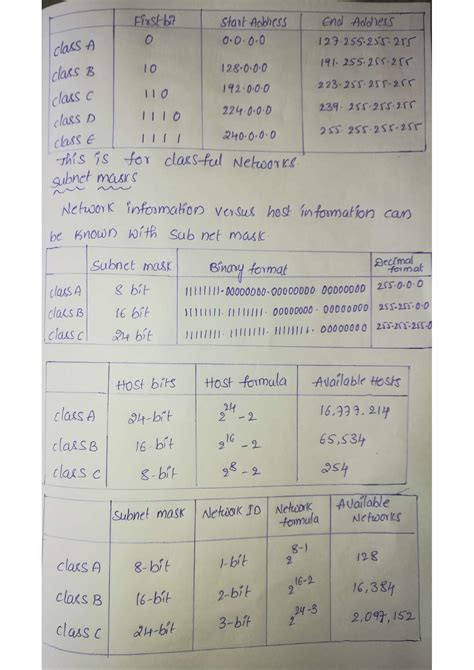 First bit Start Address End Address
class A 0 0.0.0.0 127.255.255.255
class B 10 128.0.0.0 191.255.255.255
class C 110 192.0.0.0 223.255.255.255
class D 1110 224.0.0.0 239.255.255.255
class E 1111 240.0.0.0 255.255.255.255
This is for class-ful Networks.
Subnet masks
Network information versus host information can
be known with Sub net mask.
Subnet mask Binary format Decimal format
class A 8 bit 11111111.00000000.00000000.00000000 255.0.0.0
class B 16 bit 11111111.11111111.00000000.00000000 255.255.0.0
class C 24 bit 11111111.11111111.11111111.00000000 255.255.255.0
Host bits Host formula Available Hosts
class A 24-bit 2^24 - 2 16,777,214
class B 16-bit 2^16 - 2 65,534
class C 8-bit 2^8 - 2 254
Subnet mask Network ID Network formula Available Networks
class A 8-bit 1-bit 2^8-1 128
class B 16-bit 2-bit 2^16-2 16,384
class C 24-bit 3-bit 2^24-3 2,097,152